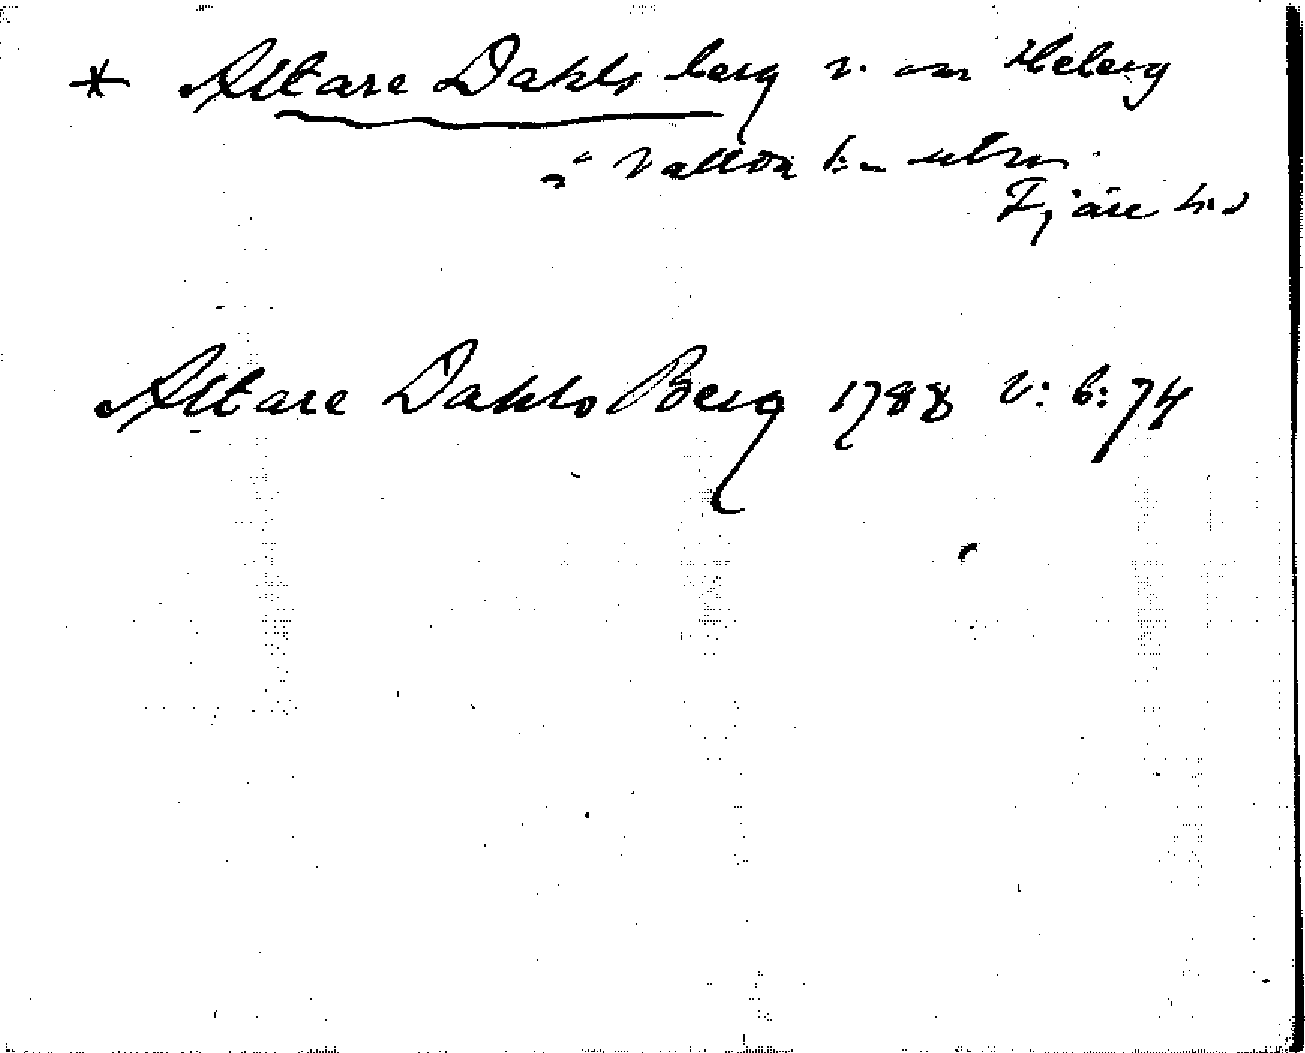 * Altare Dahls berg v. om Heberg
Vallda s:n
Fjäre h:d
Altare Dahls Berg 1788 v: b: 74